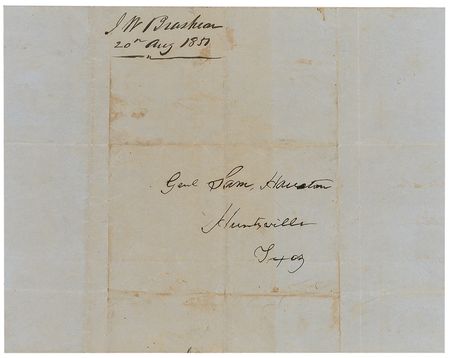 J W Brashear
20th Aug 1851
Genl Sam Houston
Huntsville
Texas